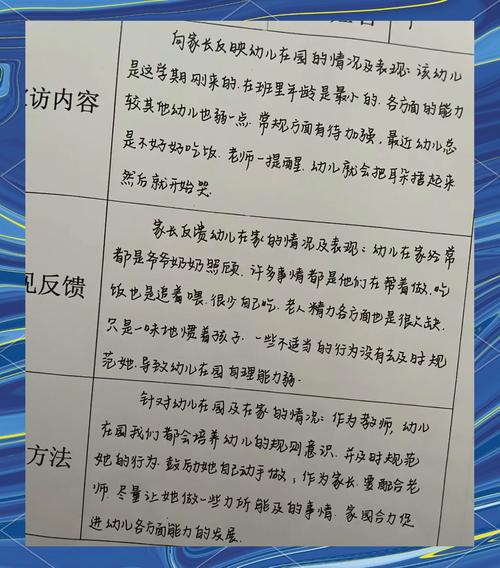 向家长反映幼儿在园的情况及表现：该幼儿
是这学期刚来的.在班里年龄是最小的.各方面的能力
访内容
较其他幼儿也弱一点.常规方面有待加强，最近幼儿总
是不好好吃饭.老师一提醒.幼儿就会把耳朵捂起来
然后就开始哭.
家长反馈幼儿在家的情况及表现：幼儿在家经常
都是爷爷奶奶照顾，许多事情都是他们在帮着做.吃
见反馈
饭也是追着喂.很少自己吃.老人精力各方面也是很欠缺.
只是一味地惯着孩子.一些不适当的行为没有去及时规
范她.导致幼儿在园自理能力弱.
针对幼儿在园及在家的情况：作为教师，幼儿
在园我们都会培养幼儿的规则意识.并及时规范
方法
她的行为.鼓励她自己动手做；作为家长.要配合老
师.尽量让她做一些力所能及的事情.家园合力促
进幼儿各方面能力的发展.